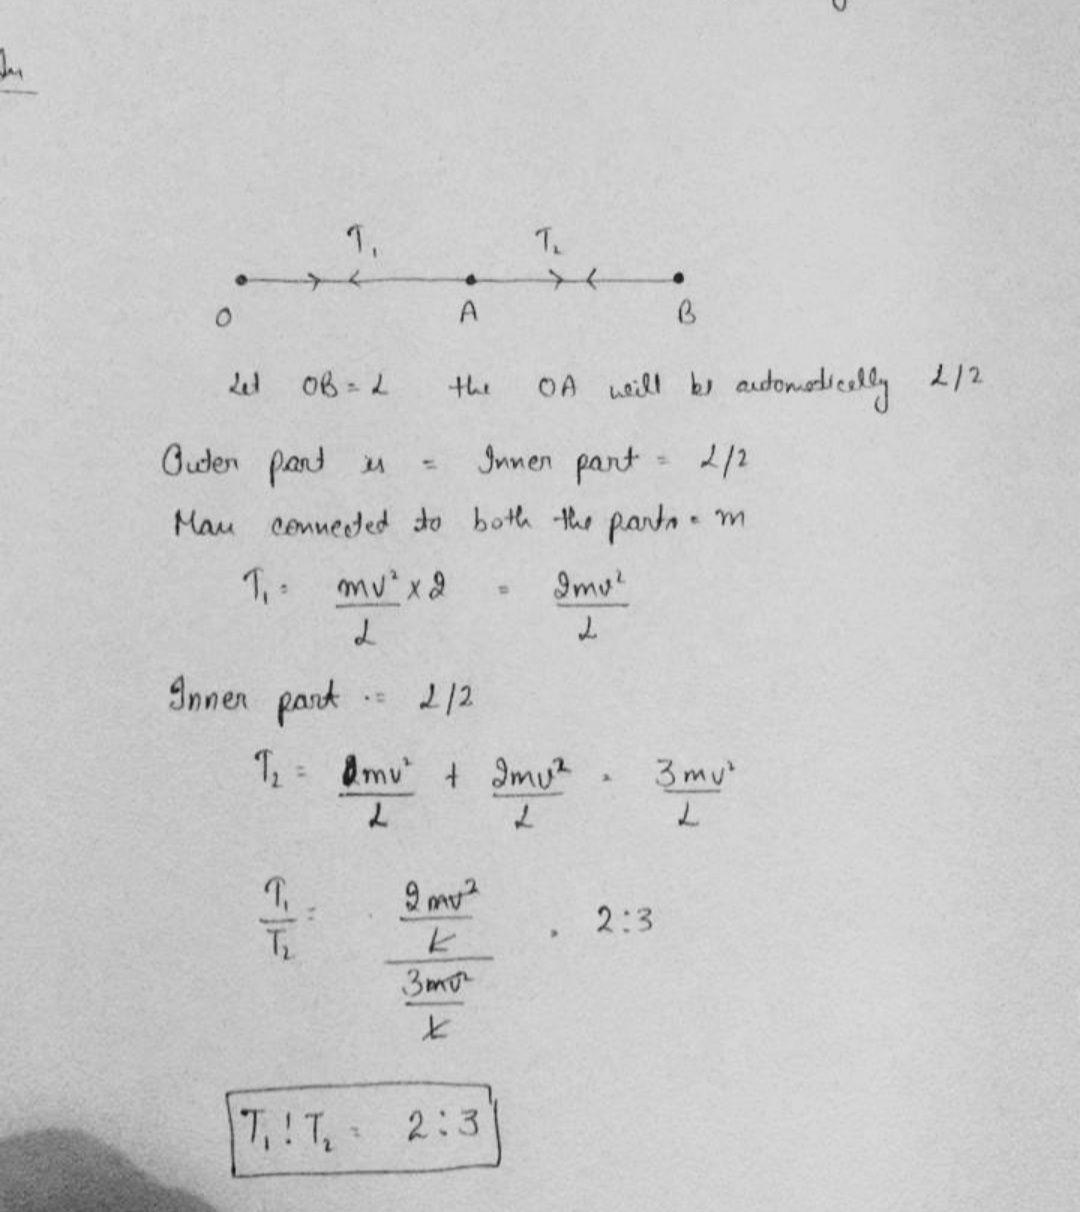 T₁ T₂
O A B
Let OB = L the OA will be automatically L/2
Outer part is = Inner part = L/2
Mass connected to both the parts = m
T₁ = mv² x 2 / L = 2mv² / L
Inner part = L/2
T₂ = mv² / L + 2mv² / L = 3mv² / L
T₁ / T₂ = 2mv² / L / 3mv² / L = 2:3
T₁ : T₂ = 2:3